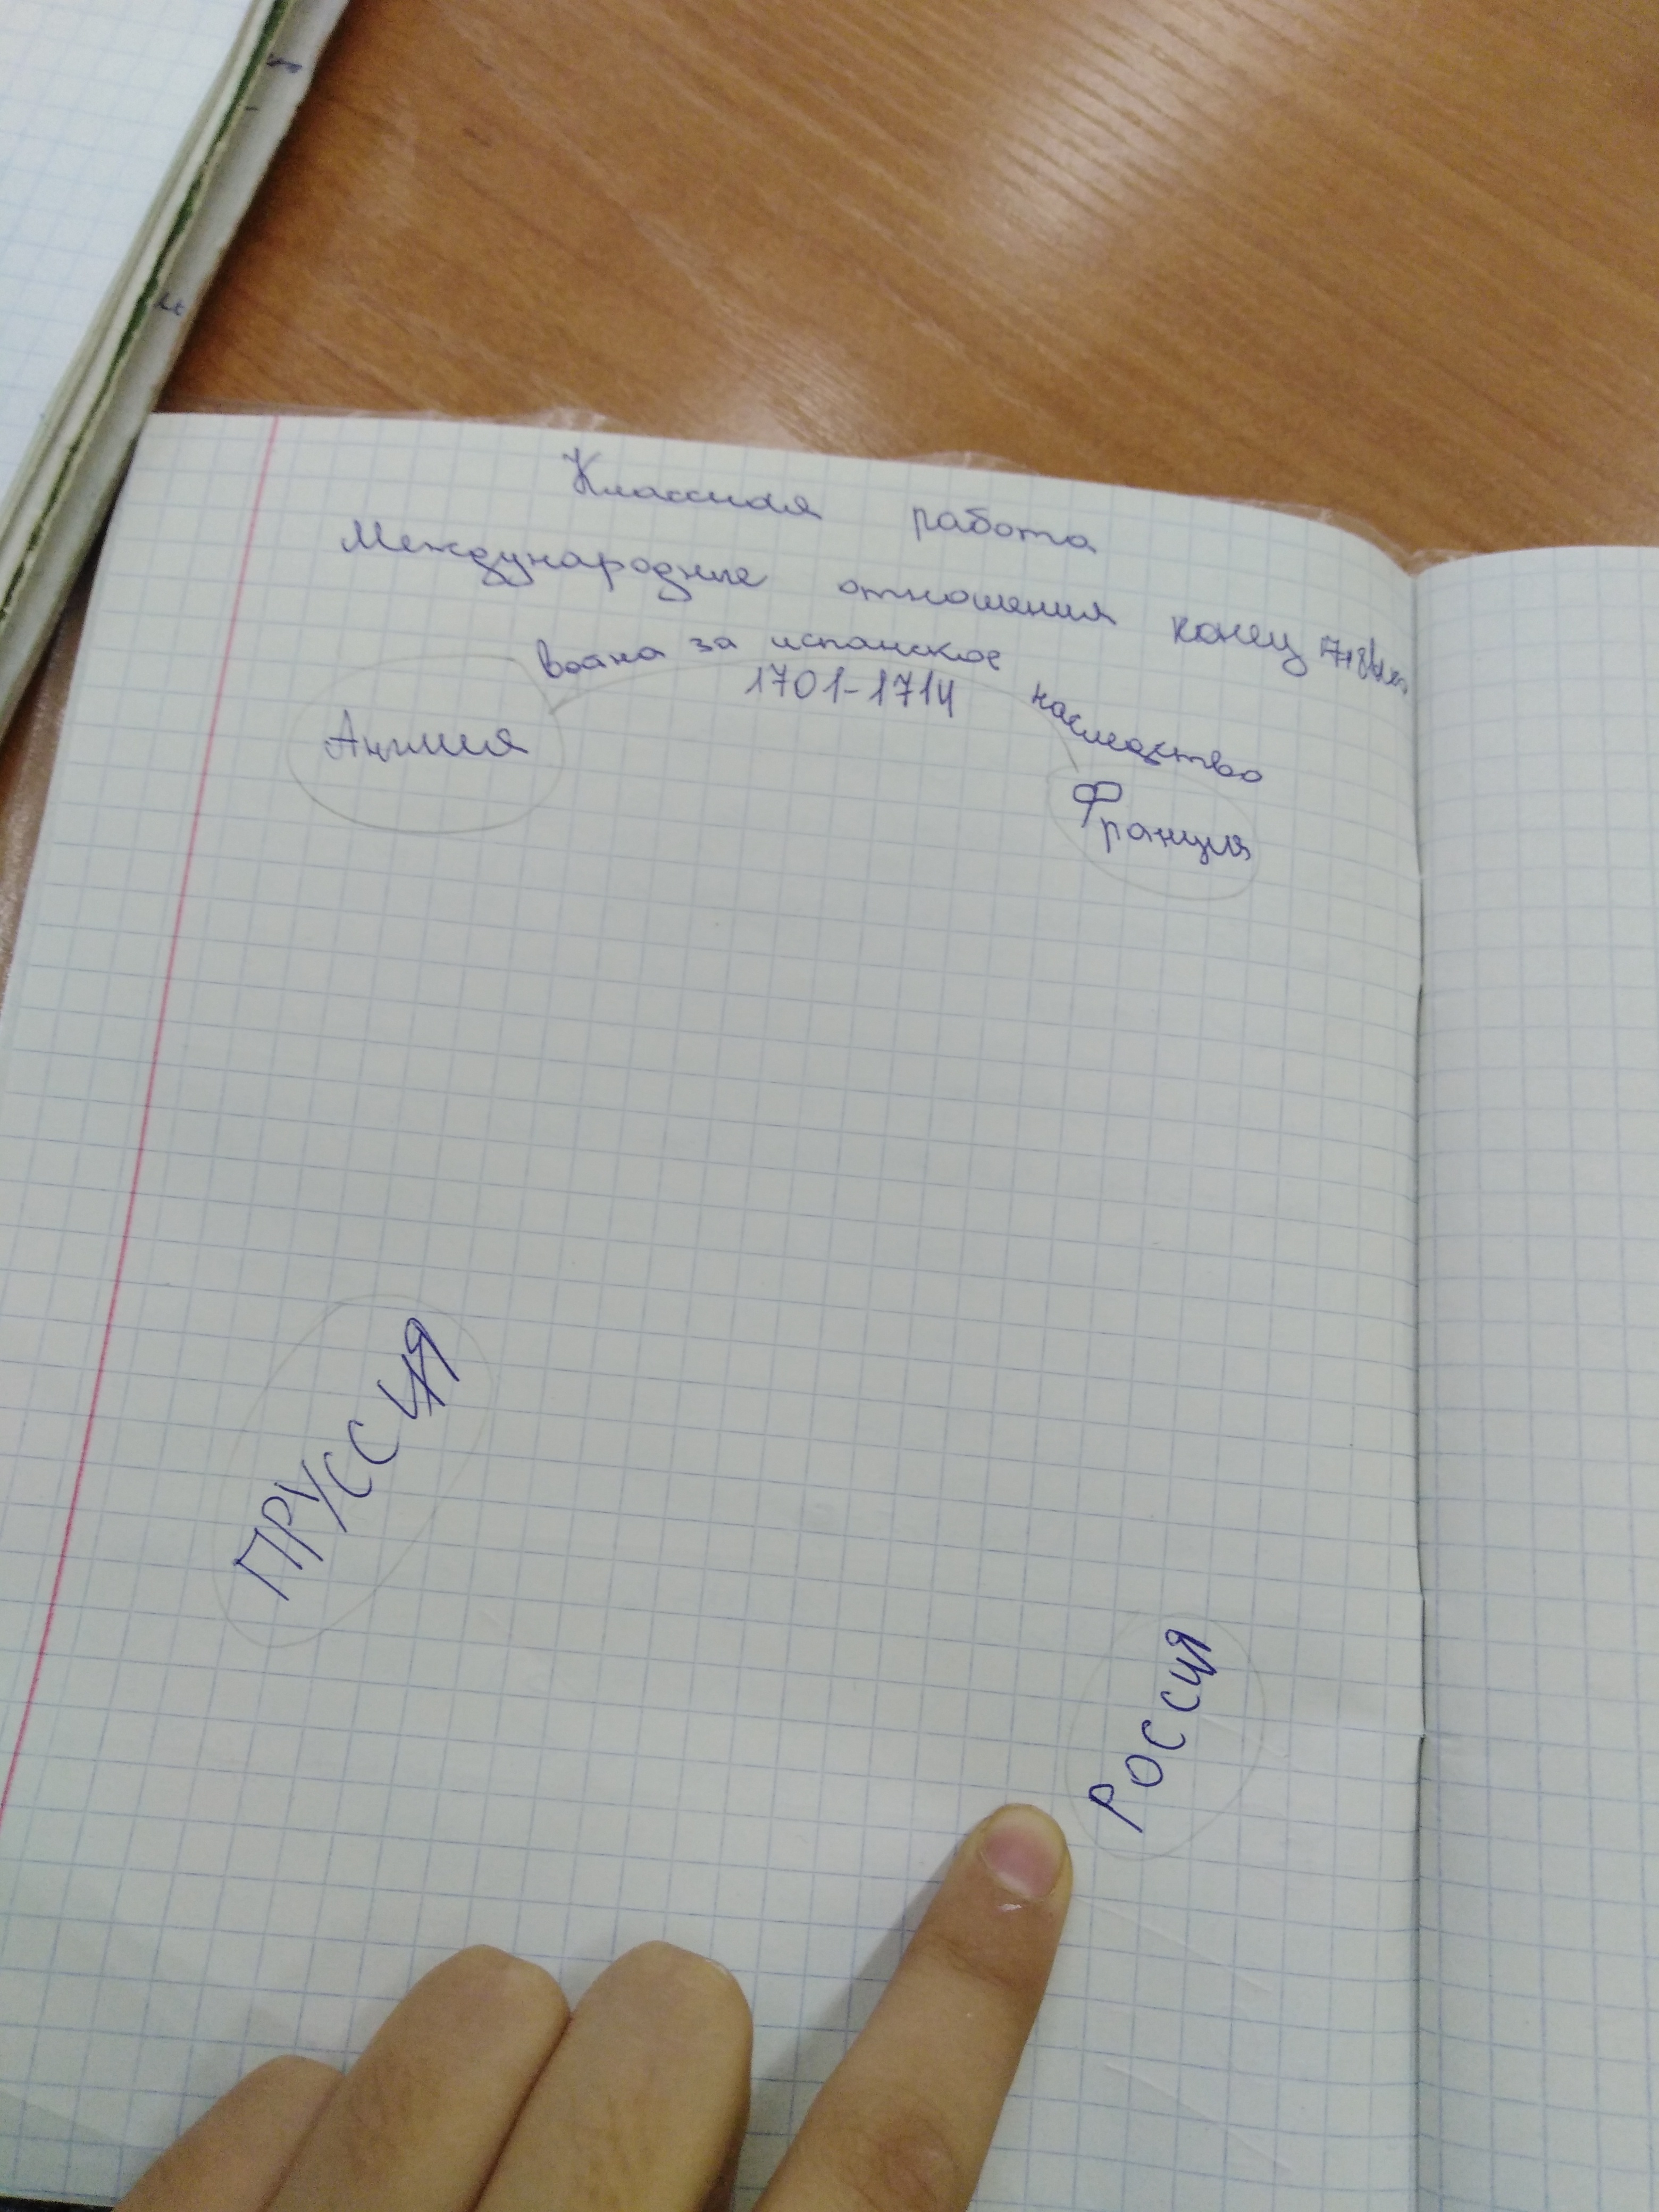 Классная работа
Международные отношения конец
война за испанское наследство
1701-1714
Англия
Франция
ПРУССИЯ
РОССИЯ